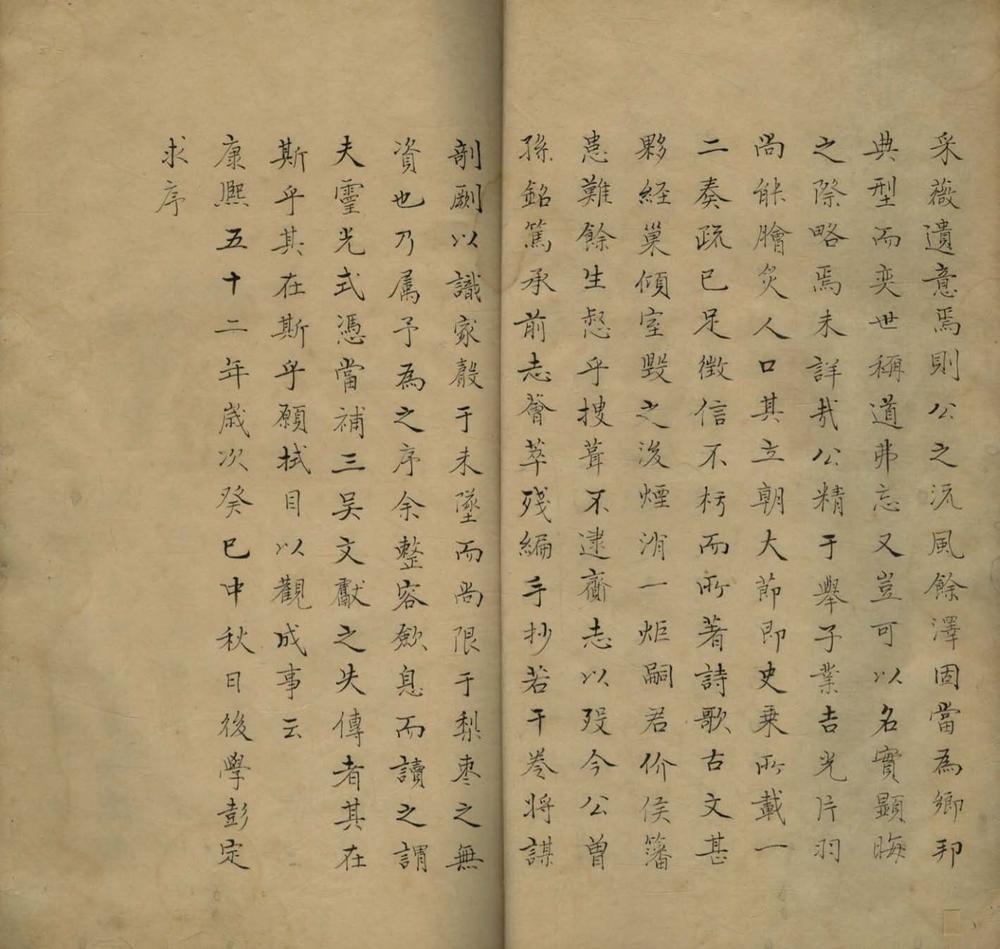 采薇遺意焉則公之流風餘澤固當為鄉邦
典型而奕世稱道弗忘又豈可以名實顯晦
之際略焉未詳哉公精于舉子業吉光片羽
尚能膾炙人口其立朝大節即史乗所載一
二奏疏已足徵信不朽而所著詩歌古文甚
夥経巢傾室毀之後煙消一炬嗣君价侯籓
患難餘生惄乎搜葺不逮齎志以歿今公曾
孫銘篤承前志薈萃残編手抄若干卷將謀
剞劂以識家聲于未墜而尚限于梨枣之無
資也乃属予為之序余整容歛息而讀之謂
夫靈光式憑當補三吴文獻之失傳者其在
斯乎其在斯乎願拭目以觀成事云
康熙五十二年歲次癸巳中秋日後學彭定
求序